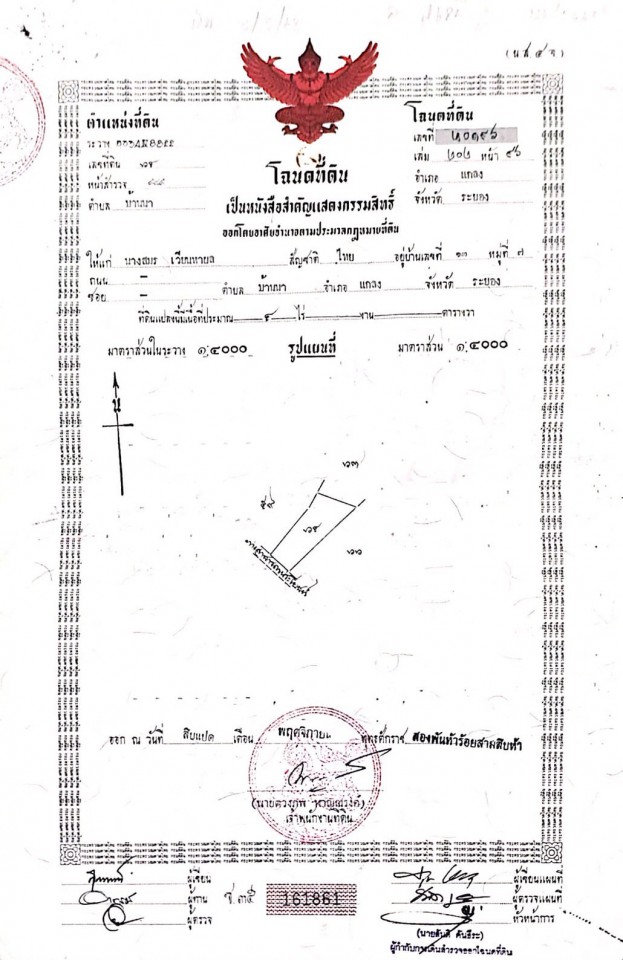 (น.ส. ๔ จ)
ตำแหน่งที่ดิน
ระวาง
เลขที่ดิน
หน้าสำรวจ
ตำบล บ้านนา
โฉนดที่ดิน
เลขที่ ๒๐๑๙๖
เล่ม ๒๐๒ หน้า ๙๖
อำเภอ แกลง
จังหวัด ระยอง
โฉนดที่ดิน
เป็นหนังสือสำคัญแสดงกรรมสิทธิ์
ออกโดยอาศัยอำนาจตามประมวลกฎหมายที่ดิน
ให้แก่ นางสมร เวียนหายล สัญชาติ ไทย อยู่บ้านเลขที่ ๑๓ หมู่ที่ ๗
ถนน – ซอย – ตำบล บ้านนา อำเภอ แกลง จังหวัด ระยอง
ที่ดินแปลงนี้มีเนื้อที่ประมาณ ไร่ งาน ตารางวา
มาตราส่วนในระวาง ๑:๔๐๐๐ รูปแผนที่ มาตราส่วน ๑:๔๐๐๐
น
ออก ณ วันที่ สิบแปด เดือน พฤศจิกายน พุทธศักราช สองพันห้าร้อยสามสิบห้า
เจ้าพนักงานที่ดิน
ผู้เขียน
ผู้ทาน
ผู้ตรวจ
ช.๓๕ 161861
ผู้เขียนแผนที่
ผู้ตรวจแผนที่
หัวหน้าการ
(นายสันติ ตันธีระ)
ผู้กำกับการเดินสำรวจออกโฉนดที่ดิน